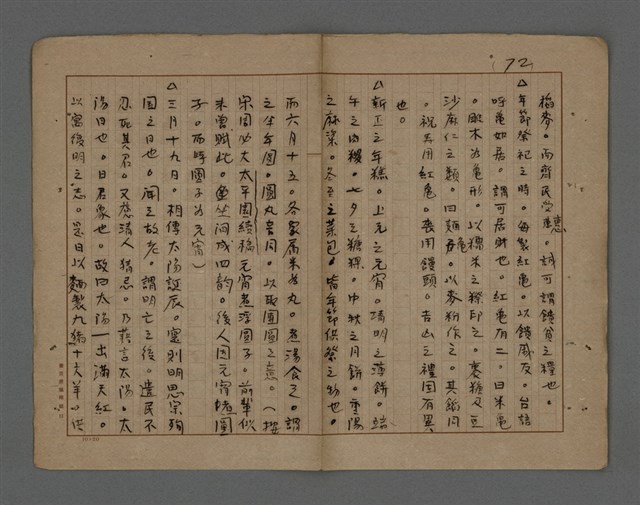 (72)
糊麥。而齊民受惠。誠可謂饋貧之糧也。
△年節祭祀之時。每製紅龜。以饋戚友。台語
呼龜如居。謂可居財也。紅龜有二。曰米龜
。厥木為龜形。以糯米之粿印之。裹糖及豆
沙麻仁之類。曰麵龜。以麥粉作之。其餡同
。祝壽用紅龜。喪用饅頭。吉凶之禮固有異
也。
△新正之年糕。上元之元宵。清明之薄餅。端
午之肉糭。七夕之糖粿。中秋之月餅。重陽
之麻粢。冬至之菜包。皆年節供祭之物也。
而六月十五。各家屑米為丸。煮湯食之。謂
之半年圓。圓丸音同。以取團圓之意。(按
宋周必大太平園續稿元宵煮浮圓子。前輩似
未曾賦此。坐间成四韵。後人因元宵煮圓
子。而呼圓子為元宵)
△三月十九日。相傳太陽誕辰。寔則明思宗殉
国之日也。聞之故老。謂明亡之後。遺民不
忍死其君。又慮清人猜忌。乃藉言太陽。太
陽日也。日君象也。故曰太陽一出滿天紅。
以寓復明之志。是日以麵製九猪十六羊。供
10×20